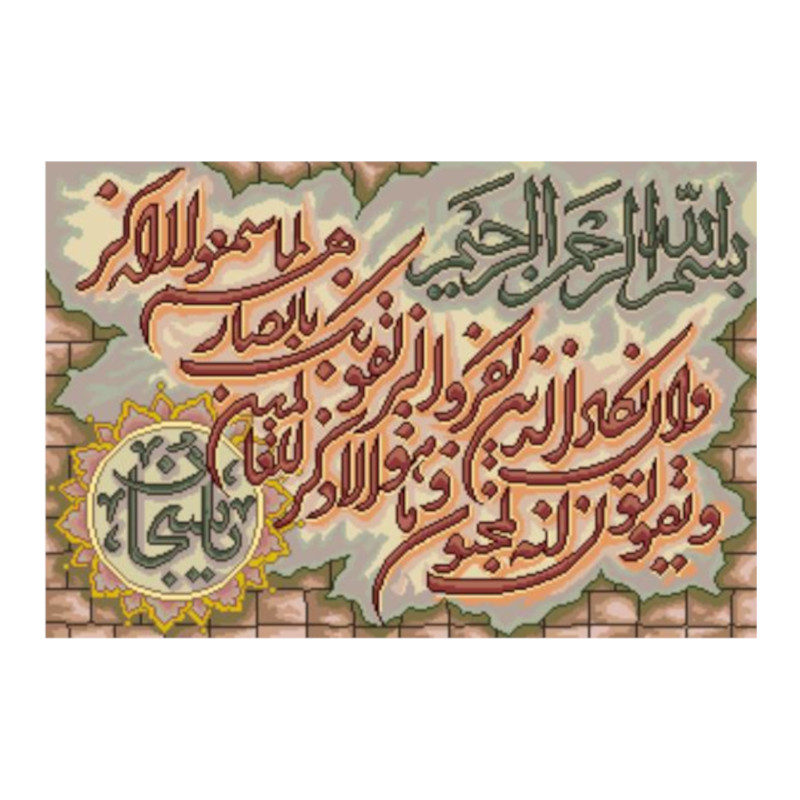 بسم الله الرحمن الرحیم
وان یکاد الذین کفروا لیزلقونک بابصارهم لما سمعوا الذکر
و یقولون انه لمجنون و ما هو الا ذکر للعالمین
یا سبحان